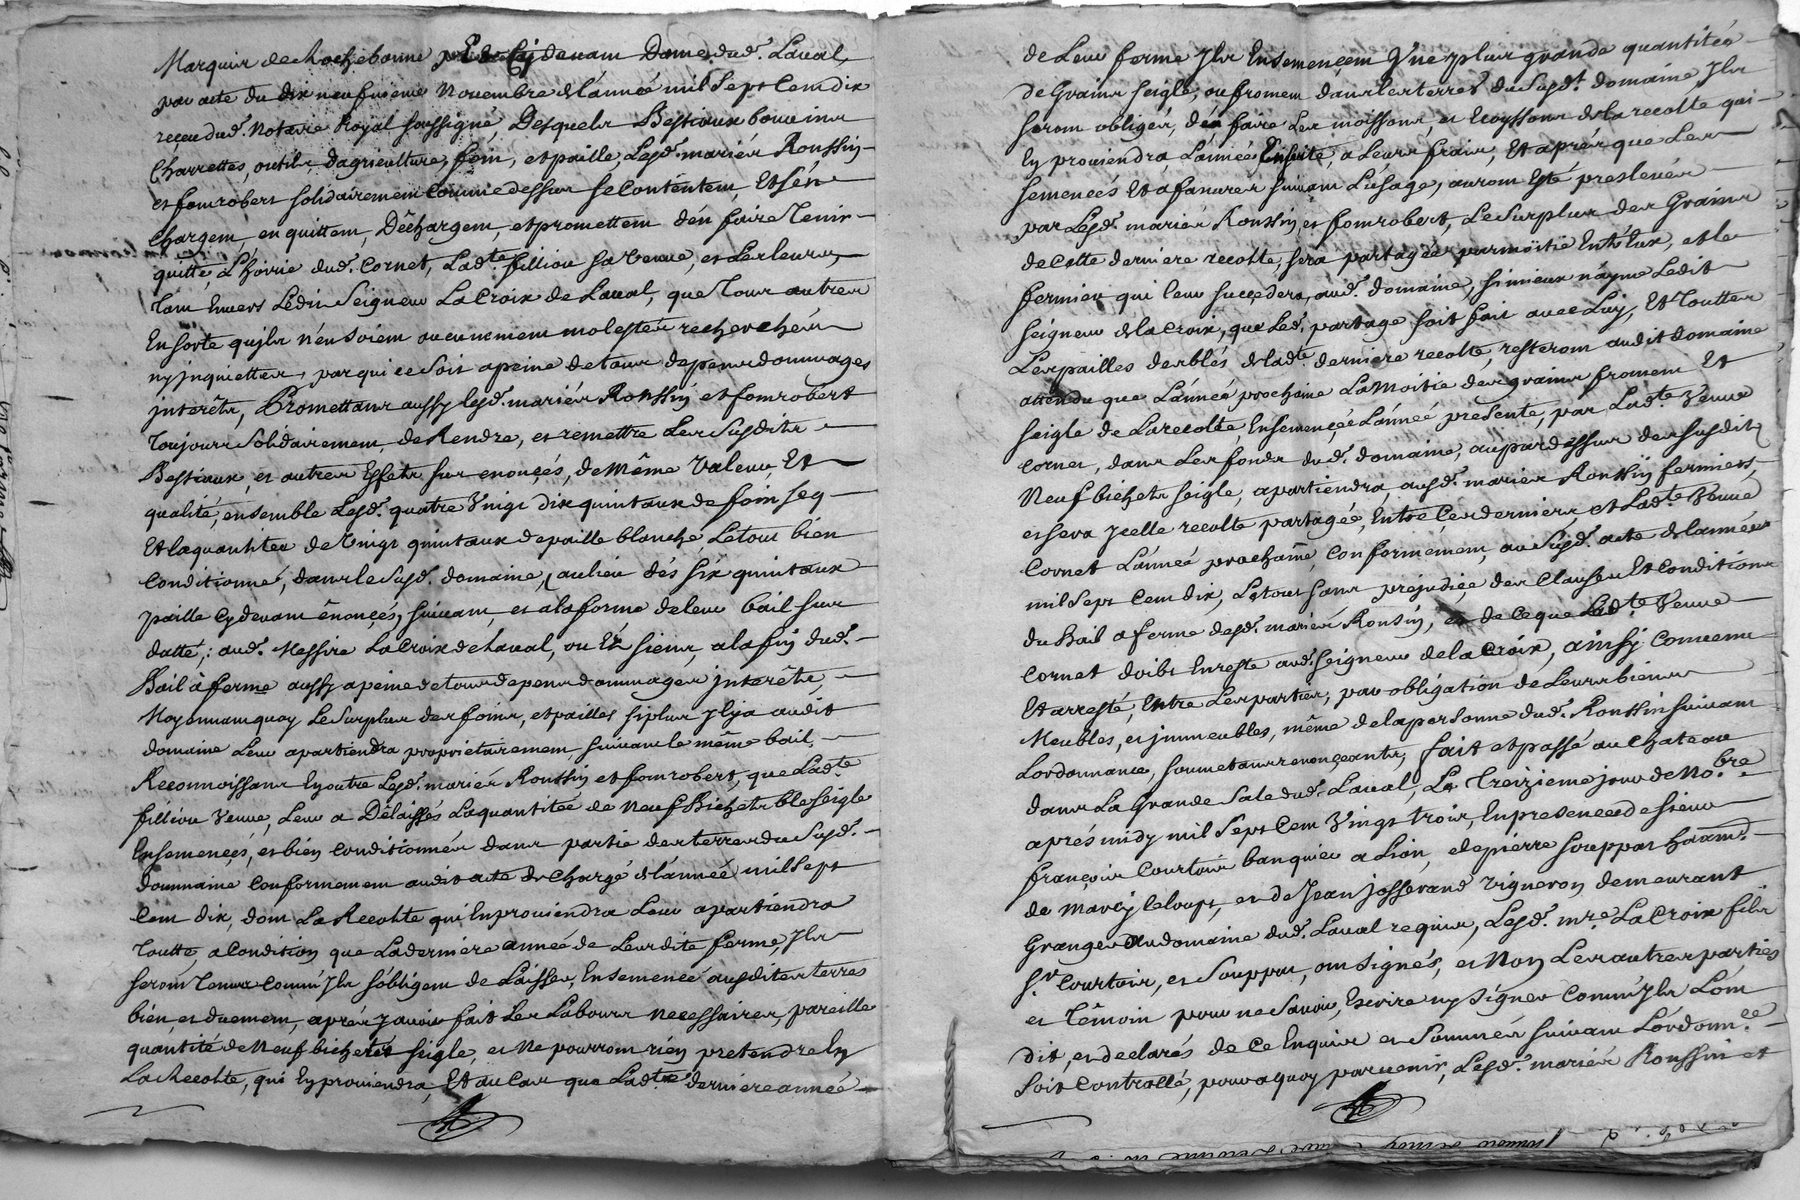 Marquis de Rochebonne Et Cydevant Dame dud. Laval,
par acte du dix neufvieme Novembre de l'année mil Sept Cent dix
receu dud. Notaire Royal soussigné, Desquels Bestiaux bouvins
Charrettes, outils, dagriculture, foin, et paille, Lesd. mariés Roussin
et fomrobert solidairement comme dessus se Contentent, Et s'en
Chargent, en quittent, Déchargent, et promettent d'en faire Tenir
quitte, L'hoirie dud. Cornet, Ladte. fillion sa Veuve, et Les leurs,
Tant Envers Ledit Seigneur La Croix de Laval, que Tous autres
En sorte qu'ils n'en soient aucunement molestés recherchés
ny jnquiettes, par qui ce Soit apeine de tous depens dommages
jnterêts, Promettans aussy lesd. mariés Roussin et fomrobert
Toujours Solidairement, de Rendre, et remettre Les Susdits
Bestiaux, et autres Effets sus enoncés, de Même Valeur, Et
qualité, ensemble Lesd. quatre Vingt dix quintaux de foin, seq
Et laquantitée de Vingt quintaux de paille blanche, Letout bien
Conditionné, dans le Susd. domaine, aulieu dés six quintaux
paille Cydevant énoncés, suivant, et alaforme deleur bail sus
datté, : aud. Messire La Croix de Laval, ou Es siens, alafin dud.
Bail àferme aussy apeine de tous depens dommages jnterêts,
Moyennant quoy Le Surplus des foins, et pailles siplus Jlyja audit
domaine Leur apartiendra proprietairement, suivant le même bail,
Reconnoissans Enoutre Lesd. mariés Roussin et fomrobert, que Ladte
fillion Veuve, Leur a Délaissés Laquantitée de Neuf Bichets bleseigle
Ensemencés, et bien conditionnés dans partie des terres du Susd.
doummaine Conformement audit acte de Chargé de l'année mil Sept
Cent dix, dont La Recolte qui Enproviendra Leur apartiendra
Toutte, a Condition que Laderniére année de Leurdite ferme, Jls
seront Tenus Comm' Jls s'obligent de Laisser, Ensemencé ausdites terres
bien, et duement, aprés y avoir fait Les Labours necessaires, pareille
quantité de Neuf bichetes seigle, et Ne pourront rien pretendre En
La Recolte, qui Enproviendra, Et au Cas que Ladte derniere année
de Leur ferme Jls Ensemençent Vne plus grande quantitées
de Grains seigle, ou froment dans les terres du Susd. domaine Jls
seront obligés, den faire Les moissons, et Ecoyssons de la recolte qui
En proviendra, L'année Ensuite, a Leurs frais, Et aprés que Les
semences Et afanures suivant L'usage, auront Esté preslevés
par Lesd. mariés Roussin et fomrobert, Le Surplus des Grains
de cette derniére recolte, sera partagée par moitie Entr'Eux, et le
fermier qui leur succedera, aud. domaine, si mieux n'ayme Ledit
seigneur de la Croix, que Led. partage soit fait avec Luy, Et Touttes
Les pailles des blés de lad.te derniére recolte, resteront audit domaine
attendu que L'année prochaine La Moitie des grains froment Et
seigle de La recolte, Ensemencée L'année presente, par Lad.te Veuve
Cornet, dans Les fonds dud. domaine, aupardessus des susdits
Neuf bichets seigle, apartiendra, ausd. mariés Roussin fermiers,
et sera Jcelle recolte partagée, Entre Ces derniers, et Lad.te Veuve
Cornet L'année prochaine, conformement, au Susd. acte de l'année
mil Sept Cent dix, Letout sans prejudice des Clauses Et Conditions
du Bail a ferme desd. mariés Rousin, et de Ce que Lad.te Veuve
Cornet doibt En reste aud. seigneur de la Croix, ainsy Convenu
Et arresté, Entre Les parties, par obligation de Leurs biens
Meubles, et jmmeubles, même de la personne dud. Roussin suivant
Lordonnance, soumetans renonçeants, fait et passé au Chateau
dans La Grande Sale dud. Laval, Le Treizieme jour de No.bre
aprés midy mil Sept Cent Vingt trois, Enpresence de sieur
françois Courtois banquier a Lion, de pierre souppat
de Marcy leloup, et de Jean josserand Vigneron demeurant
Granger Au domaine dud. Laval requis, Lesd. m.re La Croix fils
S.r Courtois, et Souppat, ont Signés, et Non Les autres parties
et Têmoin pour ne Savoir, Escrire ny Signer Comm' Jls L'ont
dit, et declarés de Ce Enquis et Sommés suivant L'ordonn.ce
Soit Controllé, pour aquoy parvenir, Lesd. mariés Roussin et